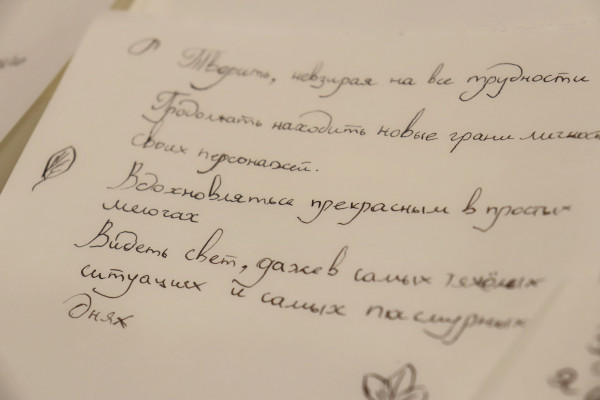 Творить, невзирая на все трудности
Продолжать находить новые грани личност
своих персонажей.
Вдохновляться прекрасным в простых
мелочах
Видеть свет, даже в самых тяжёлых
ситуациях и самых пасмурных
днях